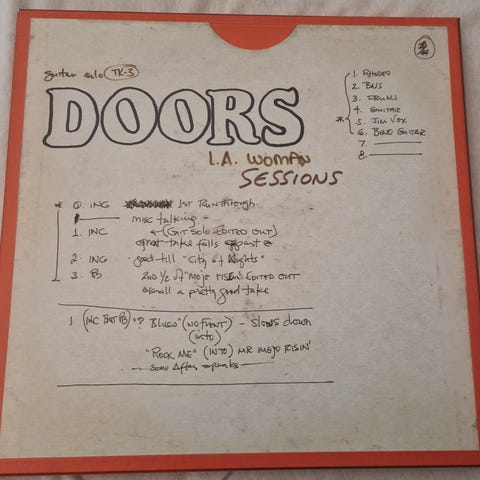 guitar solo TK-3
DOORS
L.A. WOMAN
SESSIONS
1. RHODES
2. BASS
3. DRUMS
4. GUITAR
* 5. JIM VOX
6. BEND GUITAR
7.
8.
* 0. ING 1ST RUNTHROUGH.
misc talking -
1. INC ← (GIT SOLO EDITED OUT)
great take falls apart @
2. ING good-till "City of Nights"
3. PB 2ND 1/2 of "MOJO RISIN" EDITED OUT
overall a pretty good take
1 (INC BUT PB) "? BLUES" (NO FRONT) - SLOWS down
(INTO)
"ROCK ME" (INTO) MR. MOJO RISIN'
SOME AFTER